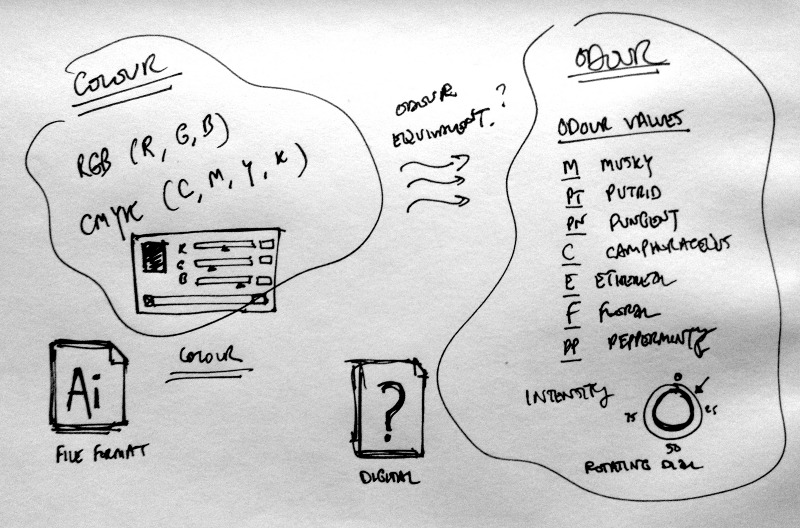 COLOUR
RGB (R, G, B)
CMYK (C, M, Y, K)
R
G
B
COLOUR
Ai
FILE FORMAT
ODOUR
EQUIVALENT.?
?
DIGITAL
ODOUR
ODOUR VALUES
M MUSKY
PT PUTRID
PN PUNGENT
C CAMPHORACEOUS
E ETHEREAL
F FLORAL
PP PEPPERMINTY
INTENSITY
0
75 25
50
ROTATING DIAL